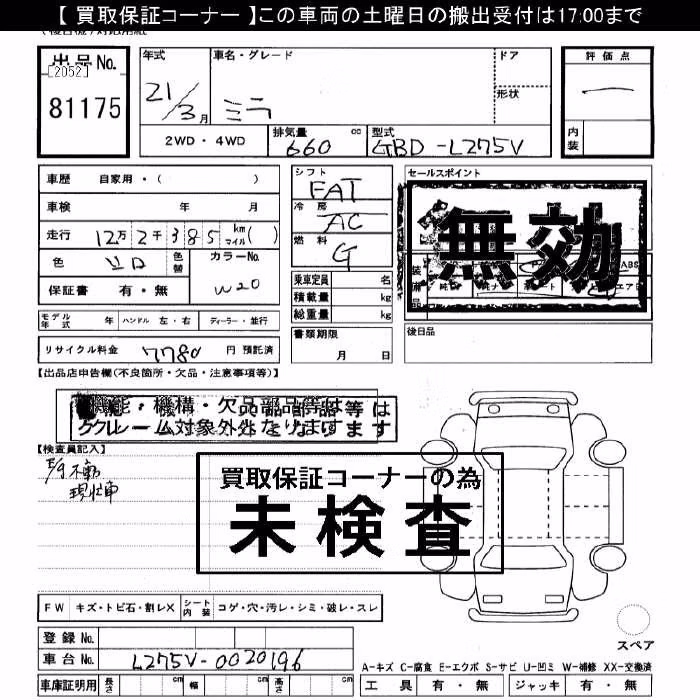 【 買取保証コーナー 】この車両の土曜日の搬出受付は17:00まで
出品No.
[2052]
81175
年式
21/3月
車名・グレード
ミラ
ドア
形状
評価点
内装
2WD・4WD
排気量
660
cc
型式
GBD-L275V
車歴 自家用・( )
車検 年 月
走行 12万2千385 km マイル( )
色
シロ
色替
カラーNo.
W20
保証書 有・無
モデル年式 年 ハンドル 左・右 ディーラー・並行
リサイクル料金 7780 円 預託済
シフト
FAT
冷房
AC
燃料
G
乗車定員 名
積載量 kg
総重量 kg
書類期限
月 日
セールスポイント
無効
後日品
【出品店申告欄(不良箇所・欠品・注意事項等)】
【検査員記入】
E/g不動
現状車
買取保証コーナーの為
未検査
FW キズ・トビ石・割レX シート内装 コゲ・穴・汚レ・シミ・破レ・スレ
登録No.
車台No. L275V-0020196
車庫証明用 長さ cm 幅 cm 高さ cm
スペア
A-キズ C-腐食 E-エクボ S-サビ U-凹ミ W-補修 XX-交換済
工具 有・無 ジャッキ 有・無